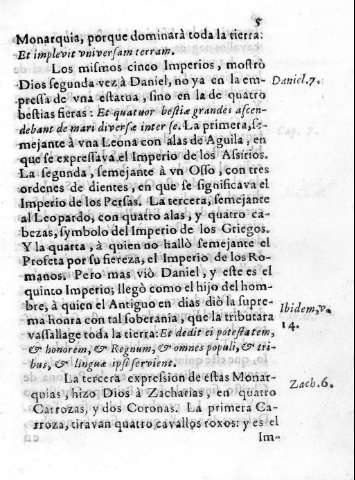 5
Monarquia, porque dominarà toda la tierra:
Et implevit vniversam terram.
Los mismos cinco Imperios, mostrò
Dios segunda vez à Daniel, no ya en la em-
Daniel.7.
pressa de vna estatua, sino en la de quatro
bestias fieras: Et quatuor bestiæ grandes ascen-
debant de mari diversæ inter se. La primera, se-
mejante à vna Leona con alas de Aguila, en
que se expressava el Imperio de los Assirios.
La segunda, semejante à vn Osso, con tres
ordenes de dientes, en que se significava el
Imperio de los Persas. La tercera, semejante
al Leopardo, con quatro alas, y quatro ca-
bezas, symbolo del Imperio de los Griegos.
Y la quarta, à quien no hallò semejante el
Profeta por su fiereza, el Imperio de los Ro-
manos. Pero mas viò Daniel, y este es el
quinto Imperio; llegò como el hijo del hom-
bre, à quien el Antiguo en dias diò la supre-
ma honra con tal soberania, que la tributara
Ibidem, v.
14.
vassallage toda la tierra: Et dedit ei potestatem,
& honorem, & Regnum, & omnes populi, & tri-
bus, & linguæ ipsi servient.
La tercera expression de estas Monar-
Zach.6.
quias, hizo Dios à Zacharias, en quatro
Carrozas, y dos Coronas. La primera Ca-
rroza, tiravan quatro cavallos roxos: y es el
Im-